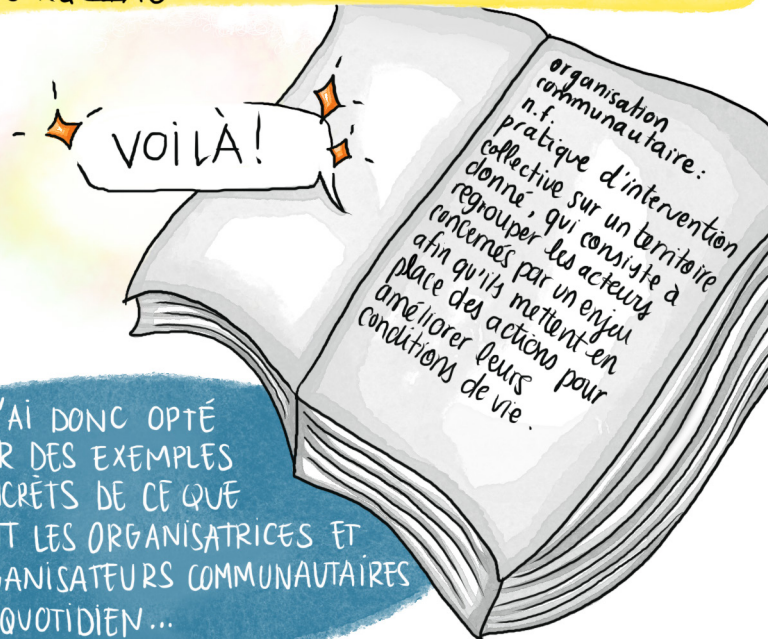 VOILÀ!
organisation
communautaire:
n.f.
pratique d'intervention
collective sur un territoire
donné, qui consiste à
regrouper les acteurs
concernés par un enjeu
afin qu'ils mettent en
place des actions pour
améliorer leurs
conditions de vie.
J'AI DONC OPTÉ
DES EXEMPLES
DE CE QUE
LES ORGANISATRICES ET
COMMUNAUTAIRES
QUOTIDIEN...